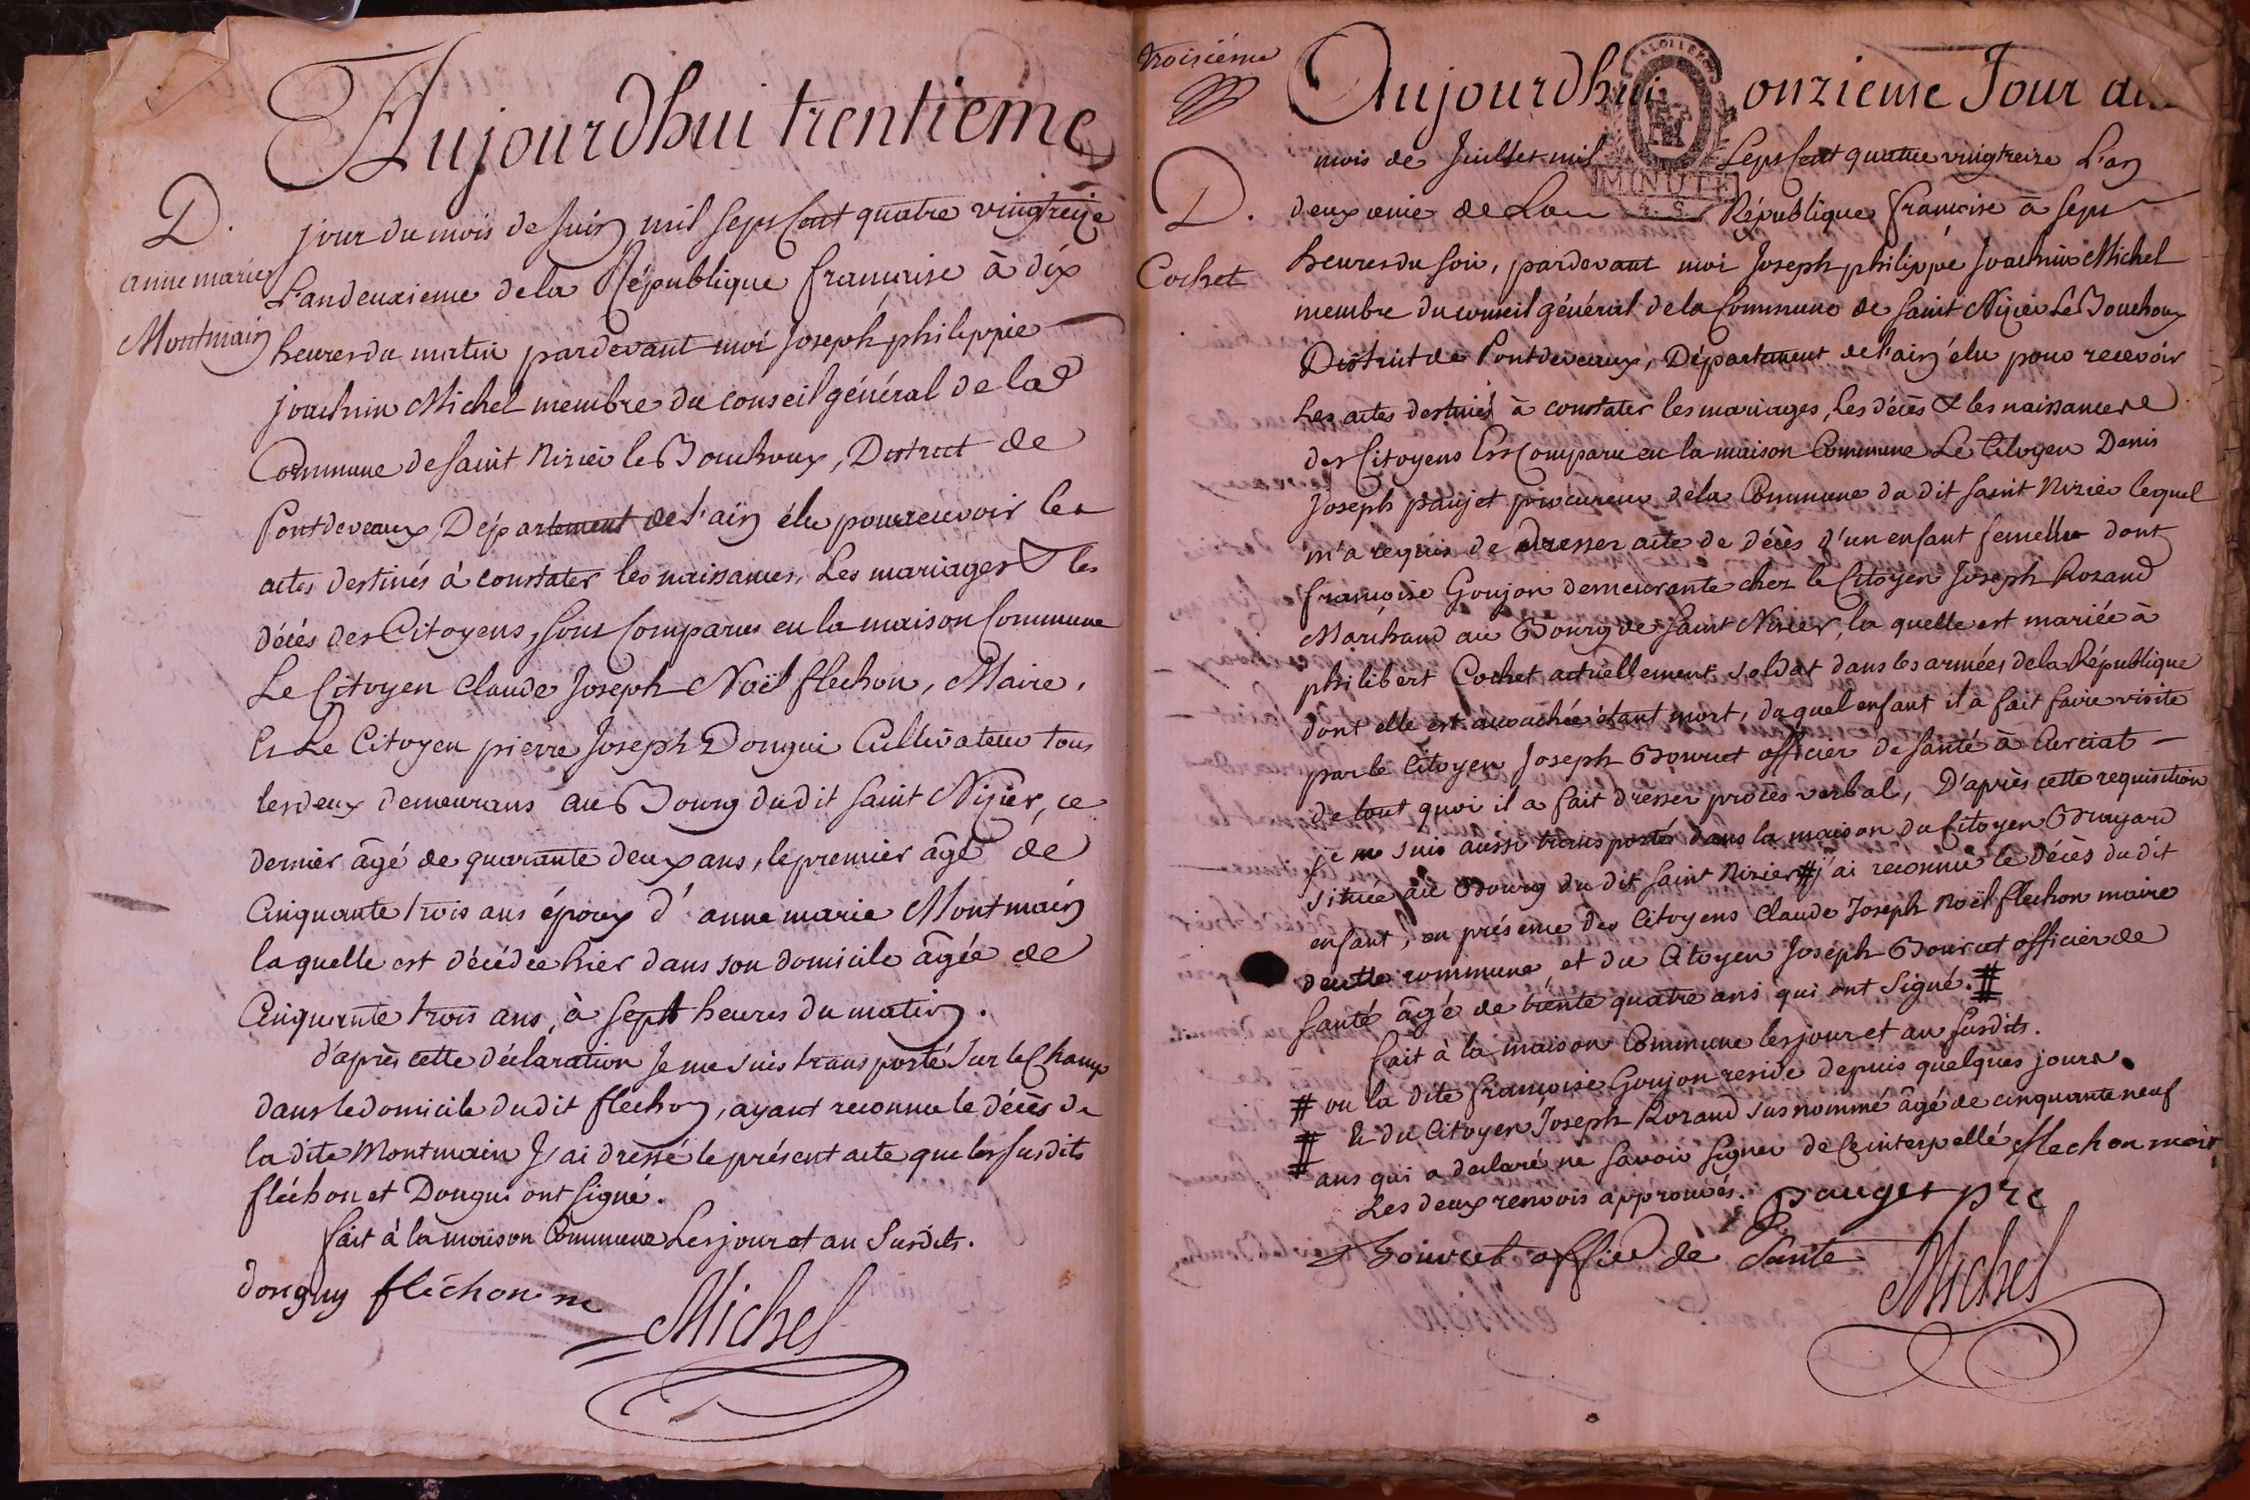 Aujourdhui trentieme
D.
jour du mois de Juin mil sept Cent quatre vingt treize
anne marie
L'an deuxieme de la République francoise à dix
Montmain
heures du matin pardevant moi Joseph philippe
joachim Michel membre du conseil général de la
Commune de saint Nizier le Bouchoux, District de
Pontdevaux Département de l'ain élu pour recevoir les
actes destinés à constater les naissances, les mariages & les
décés des Citoyens, sont Comparus en la maison Commune
Le Citoyen Claude Joseph Noël flechon, Maire,
Et Le Citoyen pierre Joseph Dongui Cultivateur tous
les deux demeurans au Bourg dudit saint Nizier, ce
dernier âgé de quarante deux ans, le premier âgé de
Cinquante trois ans époux d'anne marie Montmain
laquelle est décédée hier dans son domicile âgée de
Cinquante trois ans, à sept heures du matin.
d'après cette déclaration Je me suis transporté sur le Champ
dans le domicile dudit flechon, ayant reconnu le décès de
la dite Montmain J'ai dressé le présent acte que les susdits
fléchon et Dongui ont signé.
fait à la maison Commune Les jour et an susdits.
donguy fléchon m
Michel
troisième
Aujourdhui onzieme Jour du
MINUTE
mois de Juillet mil sept Cent quatre vingt treize L'an
D.
deuxieme de La République francoise à sept
heures du soir, pardevant moi Joseph philippe Joachim Michel
Cochet
membre du conseil général de la Commune de saint Nizier Le Bouchoux
District de Pontdevaux, Département de l'ain élu pour recevoir
Les actes destinés à constater les mariages, les décès & les naissances
des Citoyens Est Comparu en la maison Commune Le Citoyen Denis
Joseph paujet procureur de la Commune du dit saint Nizier lequel
m'a requis de dresser acte de décès d'un enfant femelle dont
francoise Goujon demeurante chez le Citoyen Joseph Rozand
Marchand au Bourg de saint Nizier, la quelle est mariée à
philibert Cochet actuellement soldat dans les armées de la République
dont elle est accouchée étant mort, duquel enfant il a fait faire visite
par le Citoyen Joseph Bouvret officier de santé à Curciat
de tout quoi il a fait dresser procès verbal, D'après cette requisition
je me suis aussi transporté dans la maison du Citoyen Bruyard
située au Bourg du dit saint Nizier # j'ai reconnu le décès du dit
enfant, en présence des Citoyens Claude Joseph Noël flechon maire
de cette commune, et du Citoyen Joseph Bouvret officier de
santé âgé de trente quatre ans qui ont signé. #
fait à la maison Commune les jour et an susdits.
# ou la dite francoise Goujon reside depuis quelques jours
# & du Citoyen Joseph Rozand susnommé âgé de cinquante neuf
ans qui a declaré ne savoir signer de Ce interpellé flechon maire
Les deux renvois approuvés. pauget pre
Bouvret officier de Santé
Michel